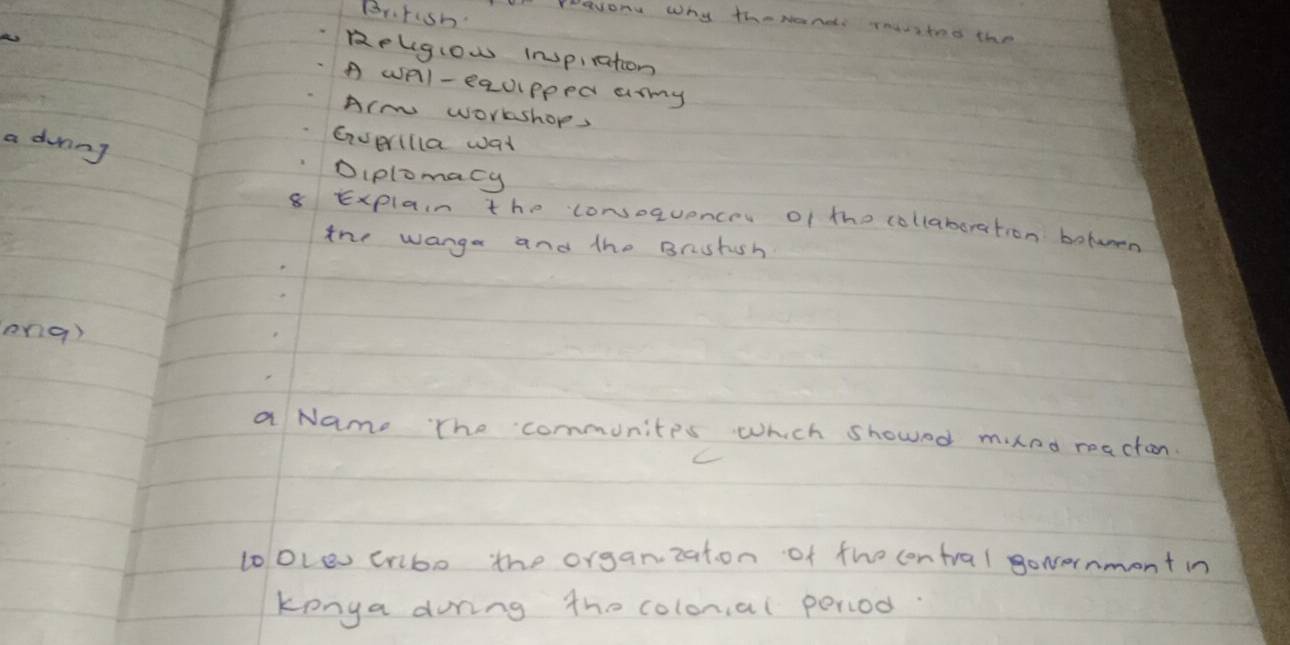 why the Nandi the
British.
· Religious inspiration
· A well-equipped army
· Arms workshops
a during
· Guerilla war
· Diplomacy
8 Explain the consequences of the collaboration between
the wanga and the Bristish.
a Name The communites which showed mixed reaction.
10 Describe the organization of the central government in
Kenya during the colonial period.